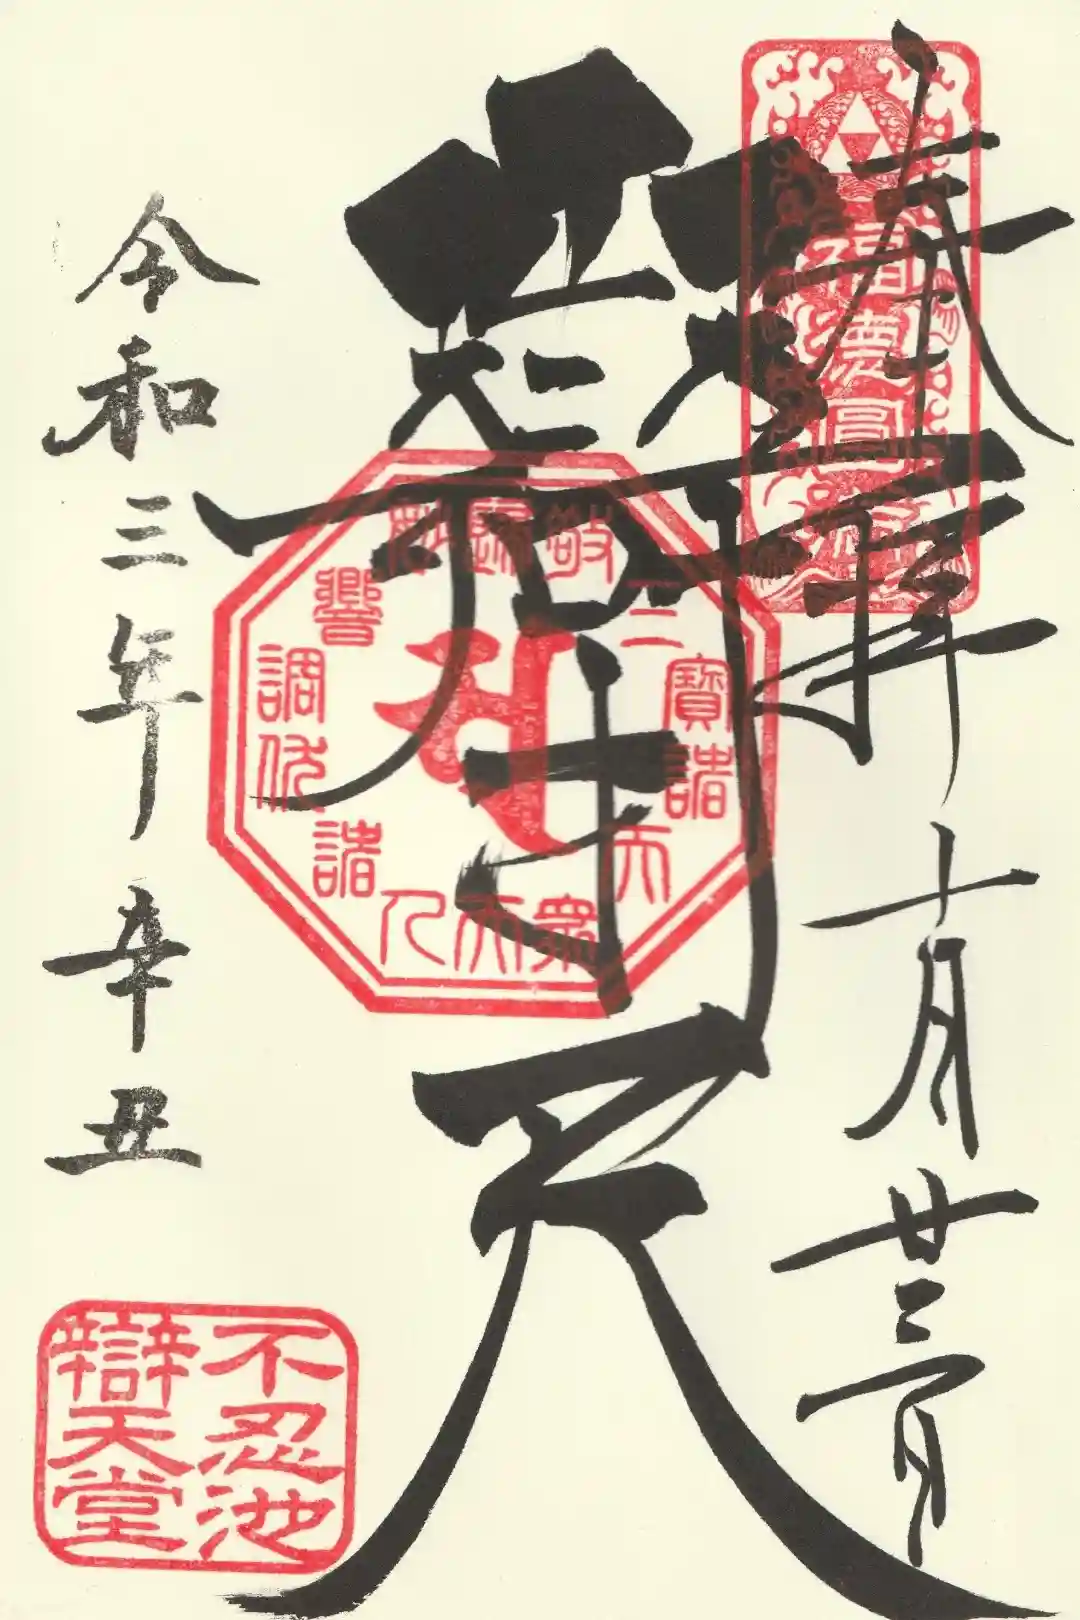 奉拝
十月廿三日
福德圓滿
辯才天
令和三年辛丑
不忍池
辯天堂